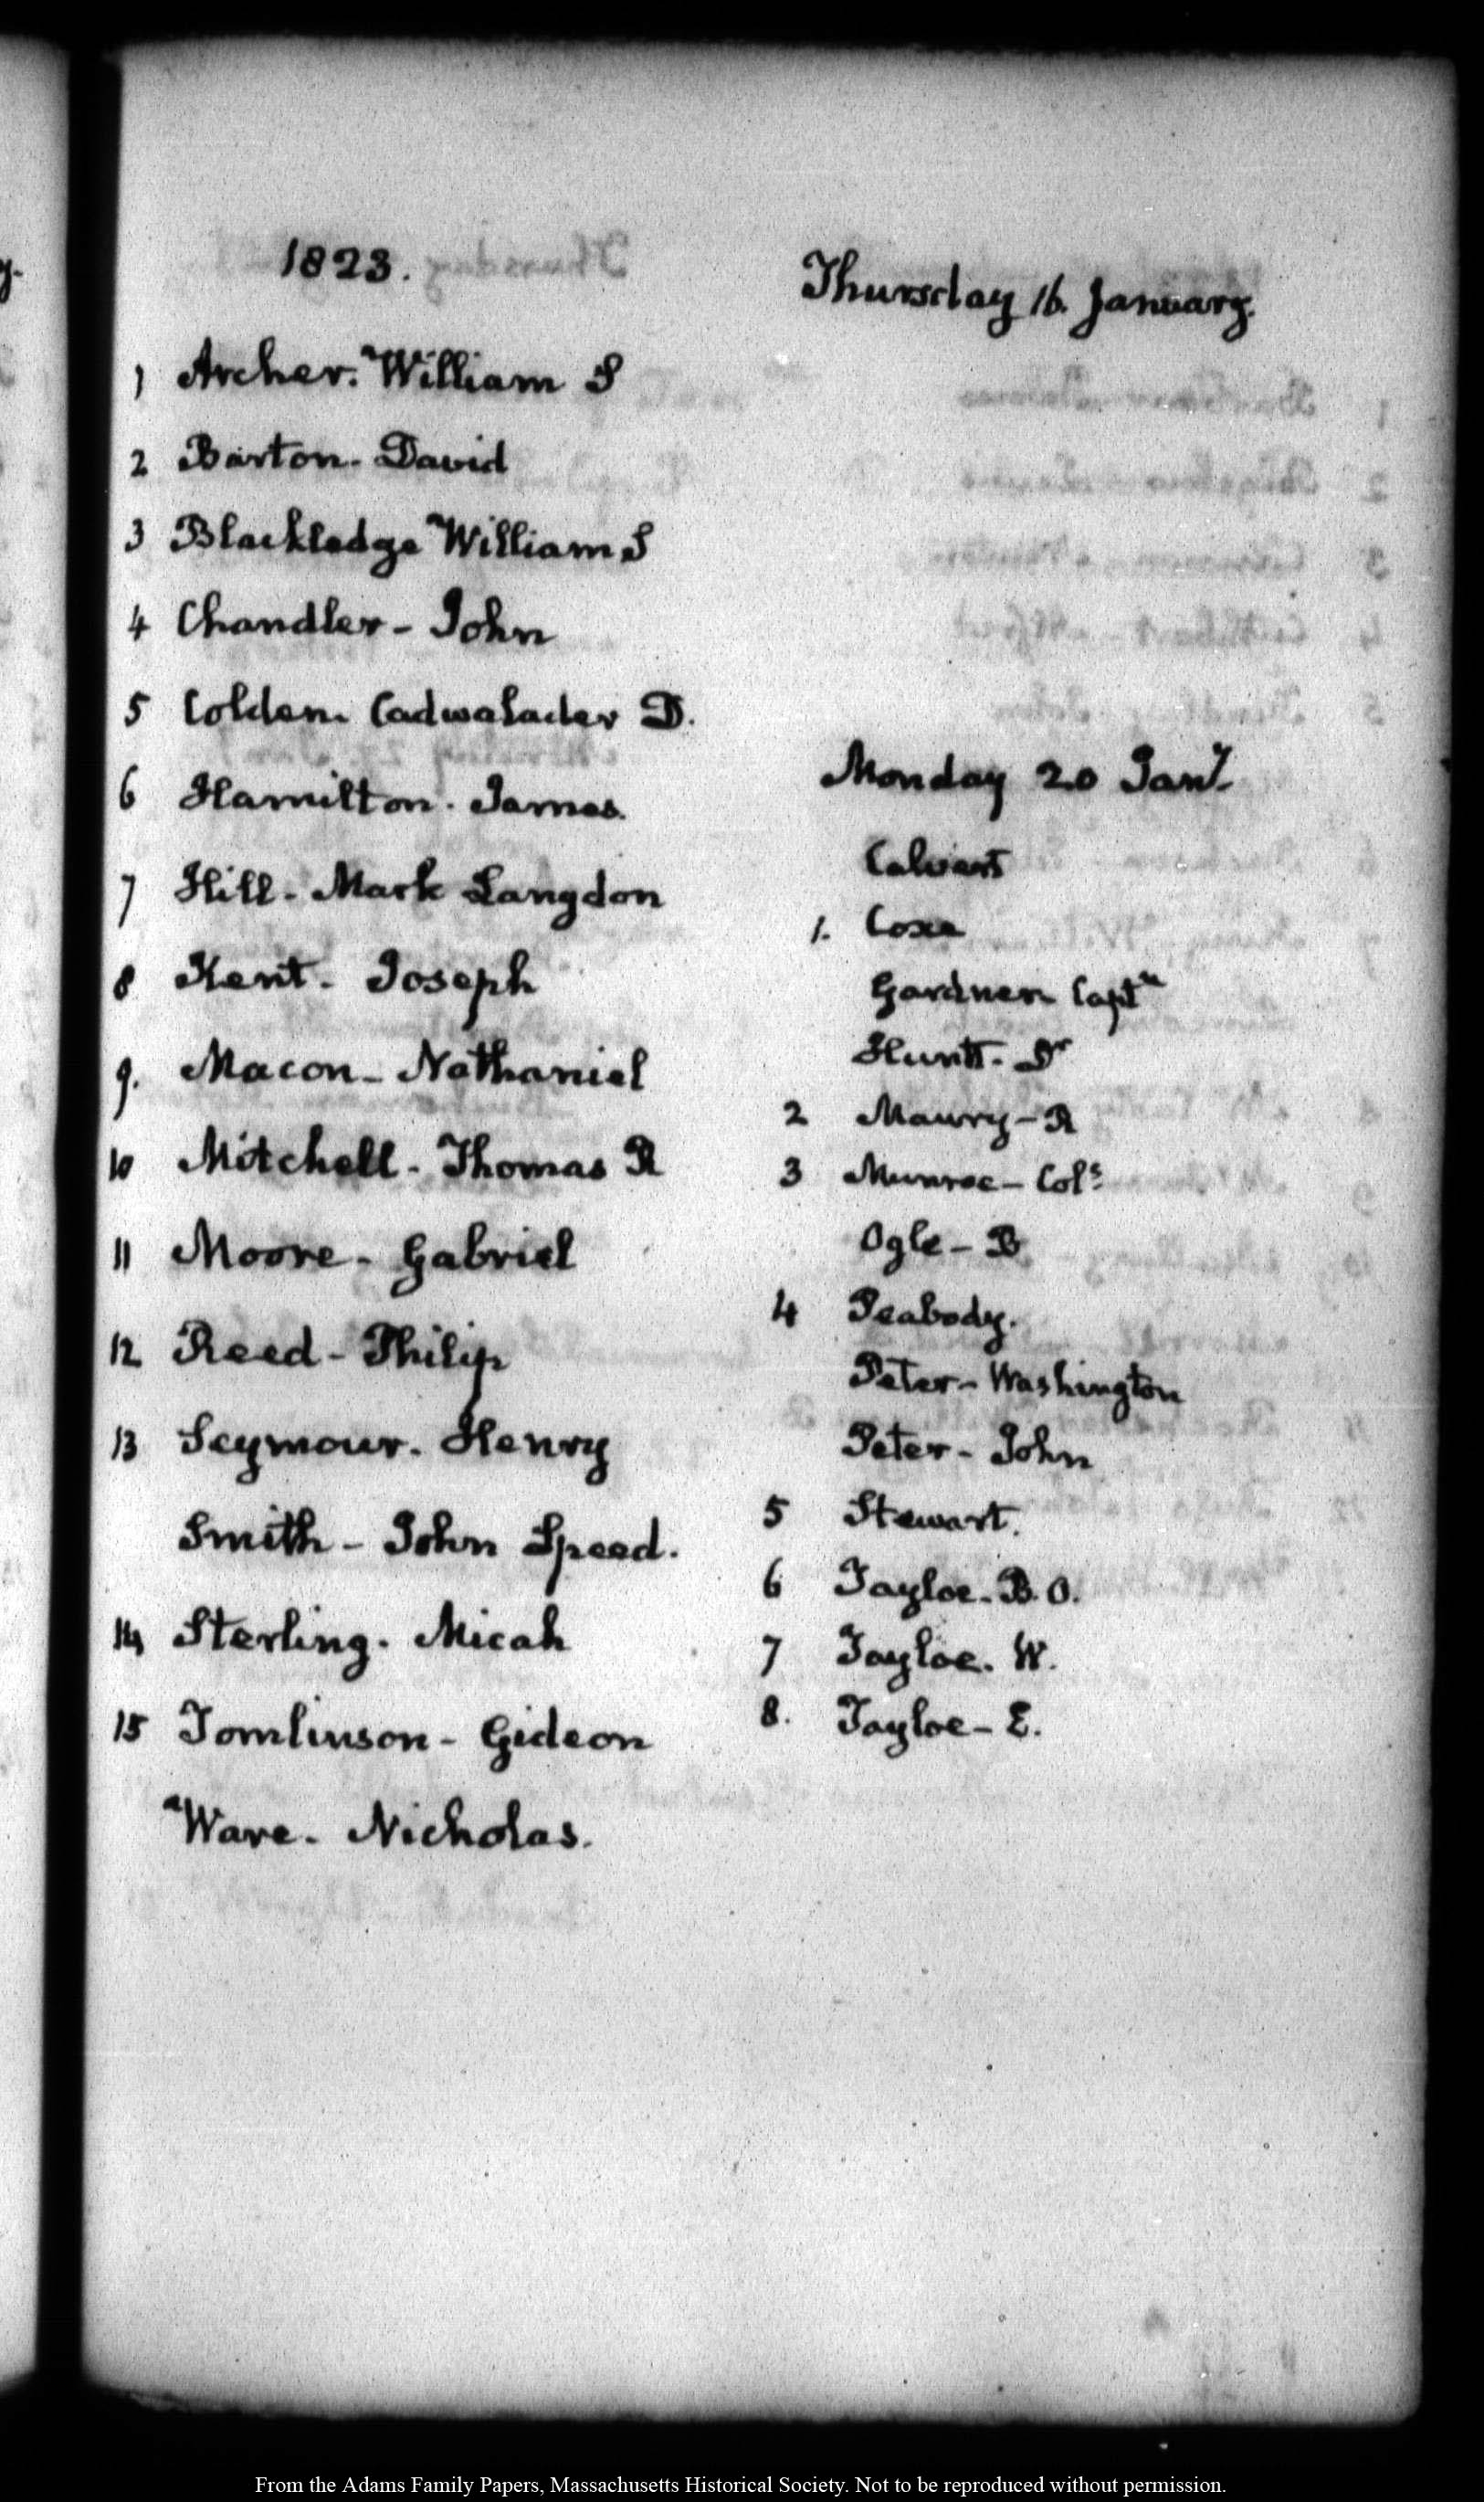 1823.
Thursday 16. January.
1 Archer. William S
2 Barton. David
3 Blackledge William S
4 Chandler - John
5 Colden. Cadwalader D.
6 Hamilton. James.
7 Hill. Mark Langdon
8 Kent. Joseph
9. Macon - Nathaniel
10 Mitchell - Thomas R
11 Moore - Gabriel
12 Reed - Philip
13 Seymour. Henry
Smith - John Speed.
14 Sterling. Micah
15 Tomlinson - Gideon
Ware. Nicholas.
Monday 20 Jany.
Calvert
1. Coxe
Gardner Captn
Huntt. Dr
2 Maury - R
3 Munroe - Cols
Ogle - B
4 Peabody.
Peter - Washington
Peter - John
5 Stewart.
6 Tayloe. B. O.
7 Tayloe. W.
8. Tayloe - E.
From the Adams Family Papers, Massachusetts Historical Society. Not to be reproduced without permission.